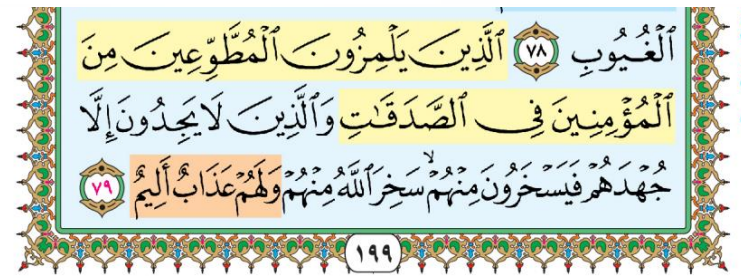 ٱلْغُيُوبِ ٧٨ ٱلَّذِينَ يَلْمِزُونَ ٱلْمُطَّوِّعِينَ مِنَ
ٱلْمُؤْمِنِينَ فِى ٱلصَّدَقَٰتِ وَٱلَّذِينَ لَا يَجِدُونَ إِلَّا
جُهْدَهُمْ فَيَسْخَرُونَ مِنْهُمْ ۙ سَخِرَ ٱللَّهُ مِنْهُمْ وَلَهُمْ عَذَابٌ أَلِيمٌ ٧٩
١٩٩